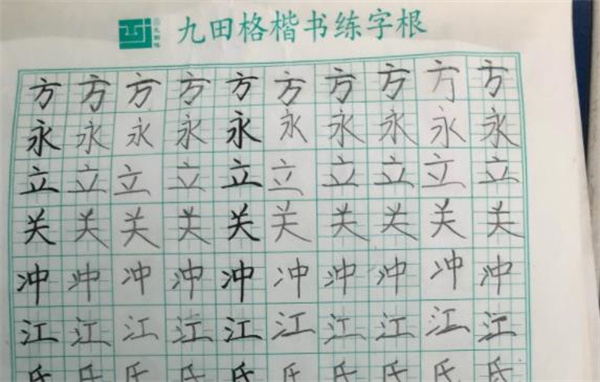 九田格楷书练字根
方方方方方方方方方方
永永永永永永永永永永
立立立立立立立立立立
关关关关关关关关关关
冲冲冲冲冲冲冲冲冲冲
江江江江江江江江江江
氏氏氏氏氏氏氏氏氏氏